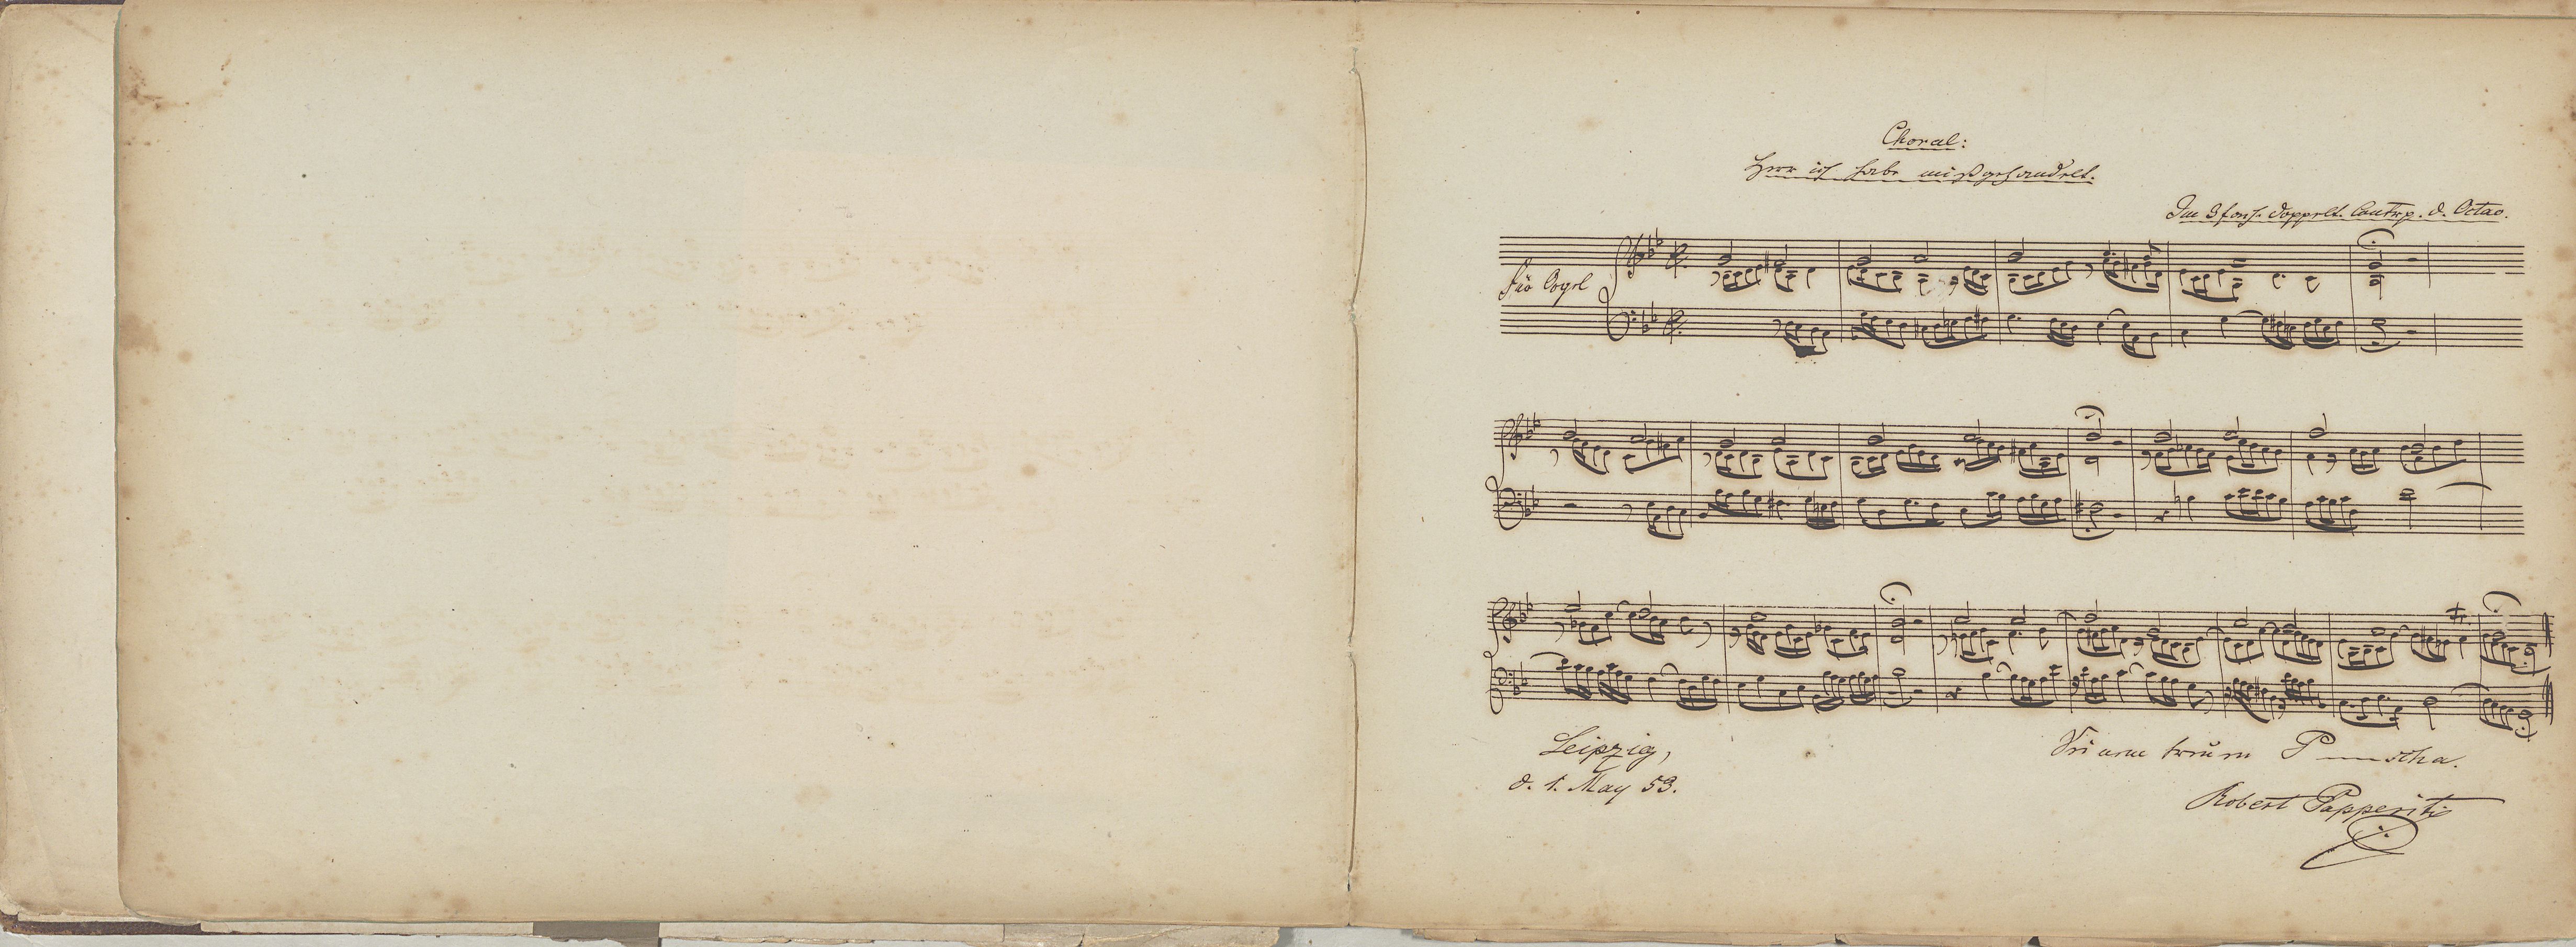 Choral:
Herr ich habe mißgehandelt.
Im 3fach. doppelt. Contrp. d. Octav.
Für Orgel
Leipzig,
d. 1. May 53.
Robert Papperitz